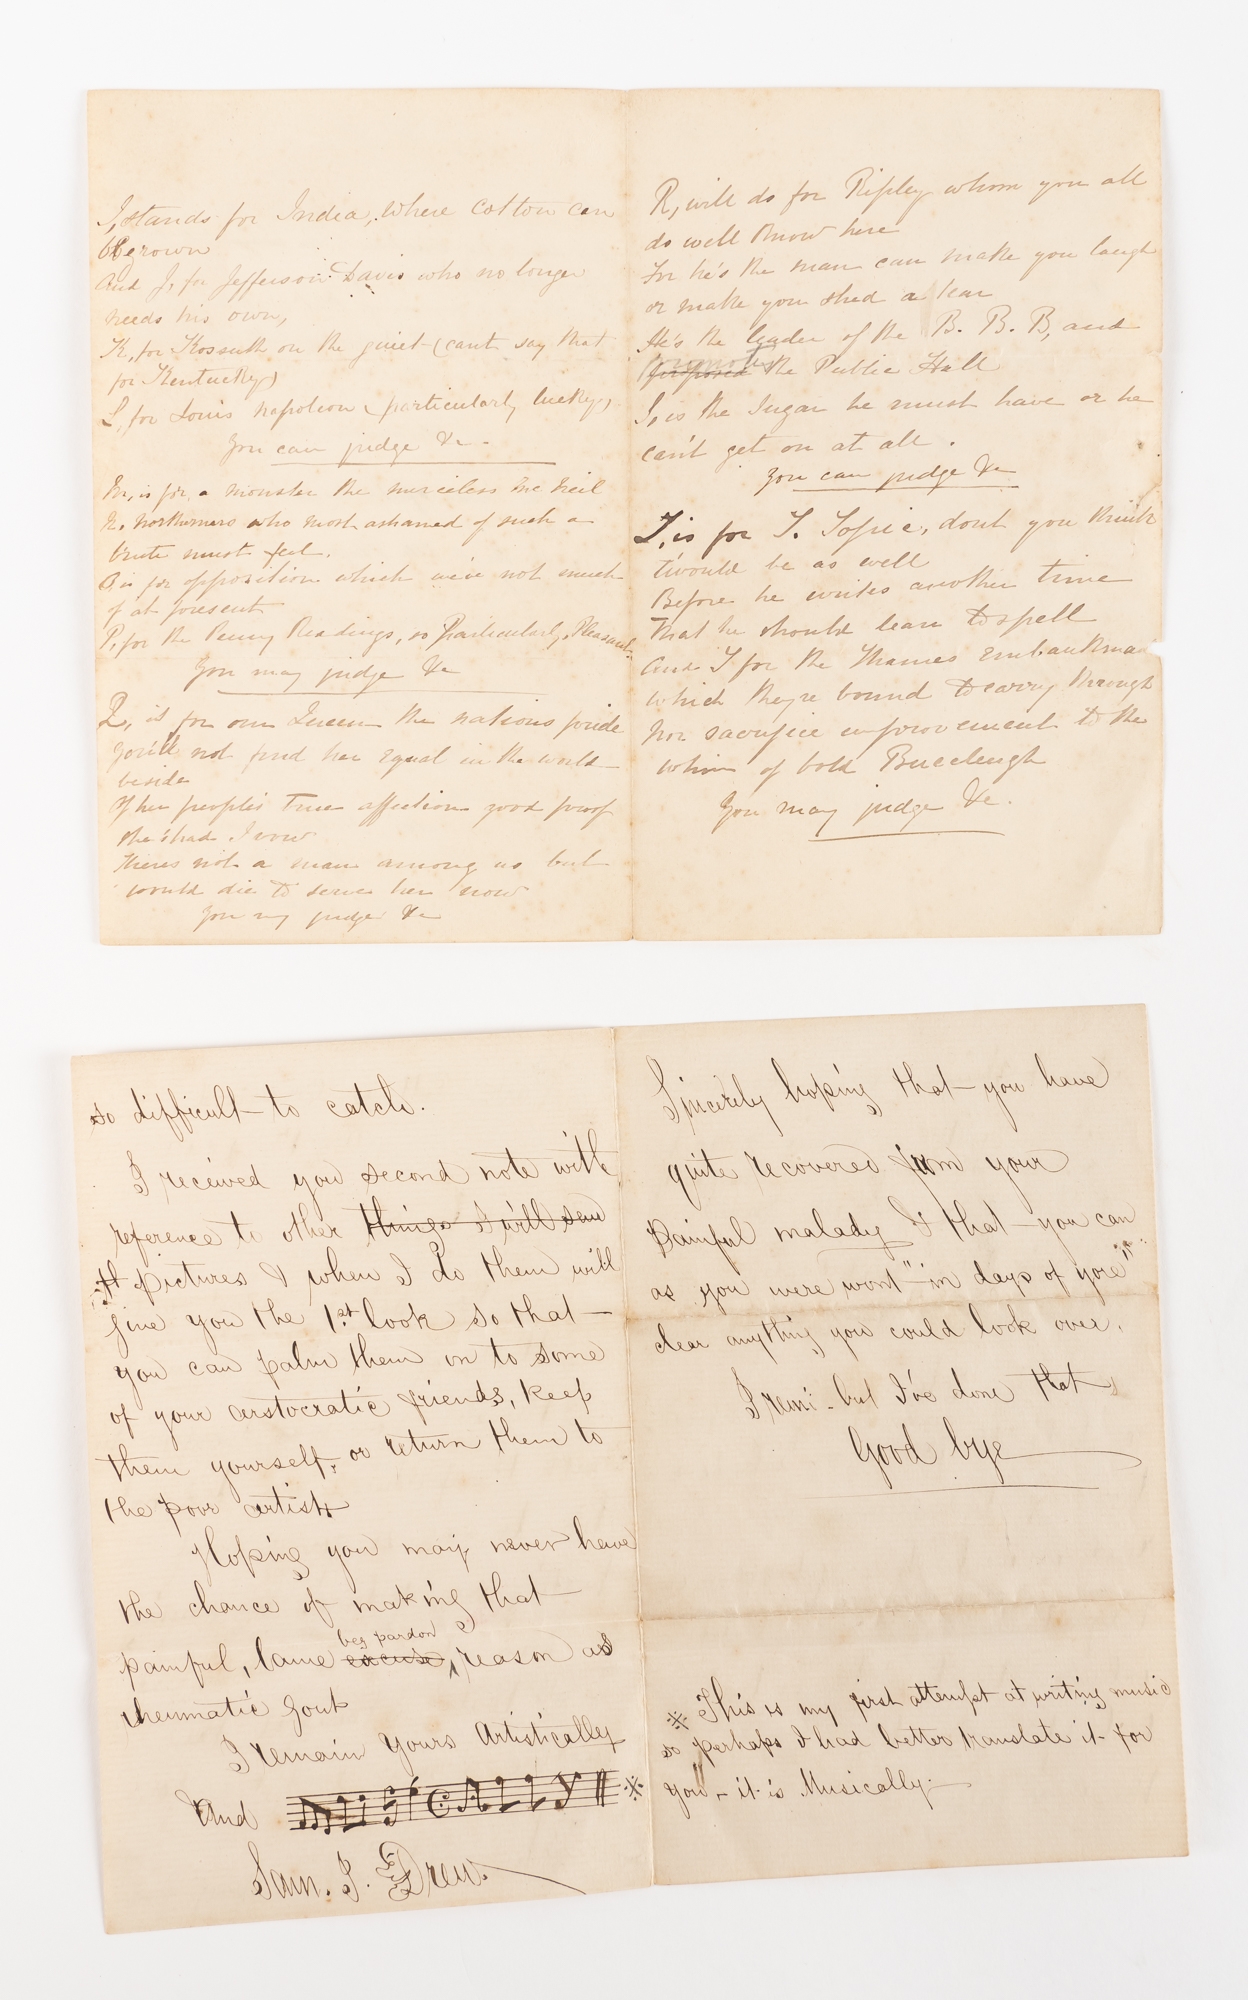 I, stands for India, where cotton can
be grown
And J, for Jefferson Davis who no longer
needs his own,
K, for Kossuth on the quiet (cant say that
for Kentucky)
L, for Louis Napoleon (particularly lucky,)
You can judge &c -
M, is for, a monster the merciless Mc Neil
N. Northerners who most ashamed of such a
brute must feel.
O is for opposition which we've not much
of at present
P, for the Penny Readings, so Particularly Pleasant
You may judge &c
Q, is for our Queen the nations pride
You'll not find her equal in the world
beside
Of her peoples true affection good proof
she's had I vow
Theres not a man among us but
would die to serve her now
You my judge &c
R, will do for Ripley whom you all
do well know here
For he's the man can make you laugh
or make you shed a tear
He's the leader of the B. B. B, and
the Public Hall
S, is the Sugar he must have or he
can't get on at all.
You can judge &c
T, is for T. Topic, dont you think
t'would be as well
Before he writes another time
That he should learn to spell
And T for the Thames Embankmen
which they're bound to carry through
Nor sacrifice improvement to the
whim of bold Buccleugh
You may judge &c.
so difficult to catch.
I received you second note with
reference to other things I will sen
pictures & when I do them will
give you the 1st look so that
you can palm them on to some
of your arstocratic friends, keep
them yourself, or return them to
the poor artist
Hoping you may never have
the chance of making that
beg pardon
painful, lame excuse, reason as
rheumatic gout
I remain Yours Artistically
And CALLY ※
Sam. J. Drew.
Sincerely hoping that you have
quite recovered from your
Painful malady & that you can
as you were wont "in days of yore"
clear anything you could look over.
I remi - but I've done that
Good bye
※ This is my first attempt at writing music
so perhaps I had better translate it for
you - it is Musically